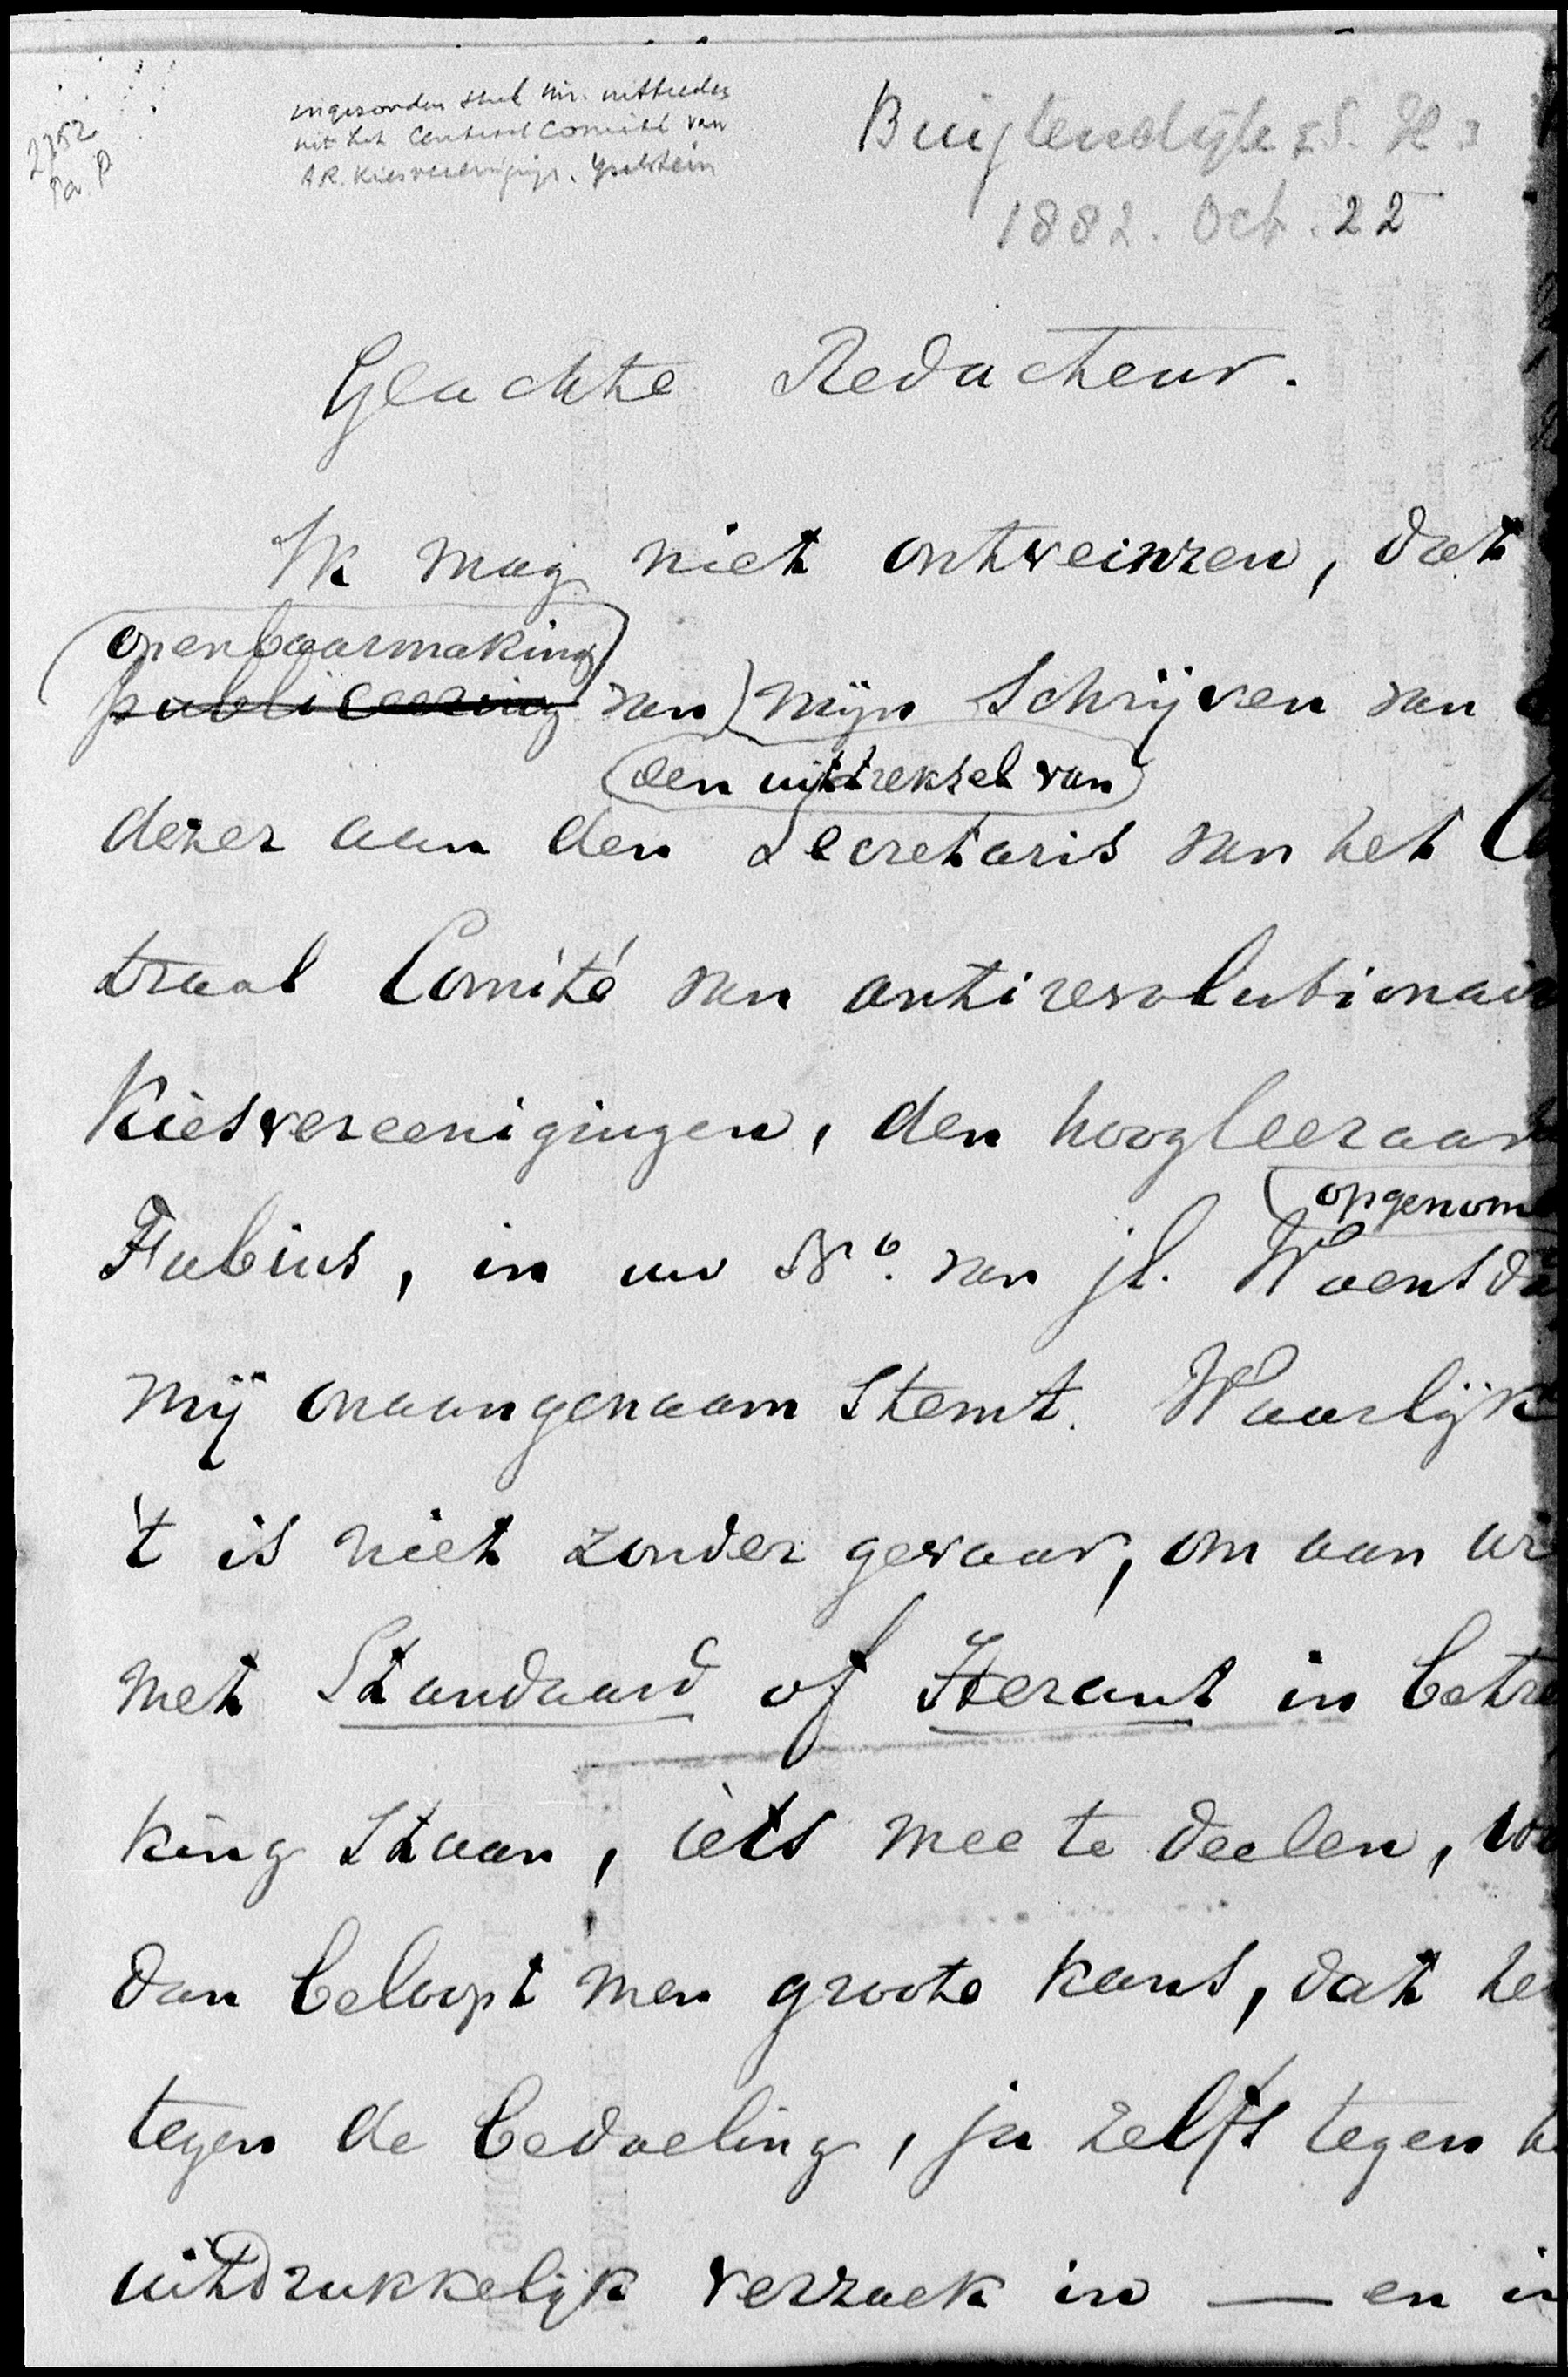 2252
Pa. P
ingezonden stuk m. uittreden
uit het Centraal Comité van
A.R. Kiesvereenigingn. Yselstein
Buijtendijk, S. H.
1882. Oct. 22
Geachte Redacteur.
Ik mag niet ontveinzen, dat
openbaarmaking
publiceering van mijn schrijven van
een uittreksel van
dezer aan den Secretaris van het Ce
traal Comité van antirevolutionair
Kiesvereenigingen, den hoogleeraar
opgenom
Fabius, in uw No. van jl. Woensda
mij onaangenaam stemt. Waarlijk
't is niet zonder gevaar, om aan wi
met Standaard of Heraut in betre
king staan, iets mee te deelen, wa
dan beloopt men groote kans, dat he
tegen de bedoeling, ja zelfs tegen h
uitdrukkelijk verzoek in — en in